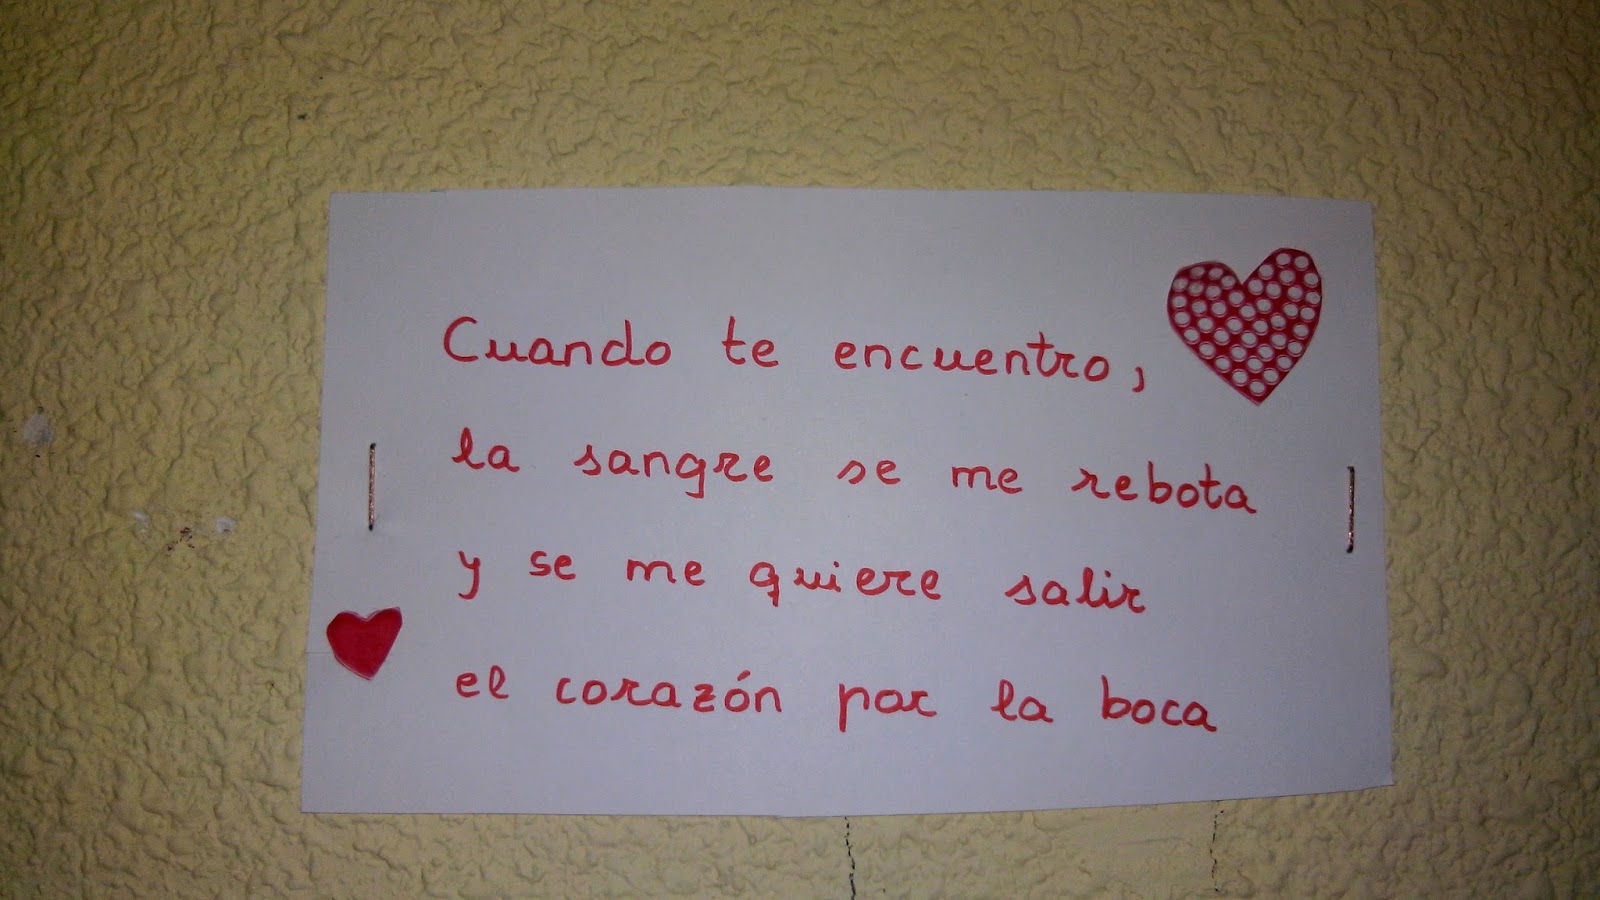 Cuando te encuentro,
la sangre se me rebota
y se me quiere salir
el corazón por la boca